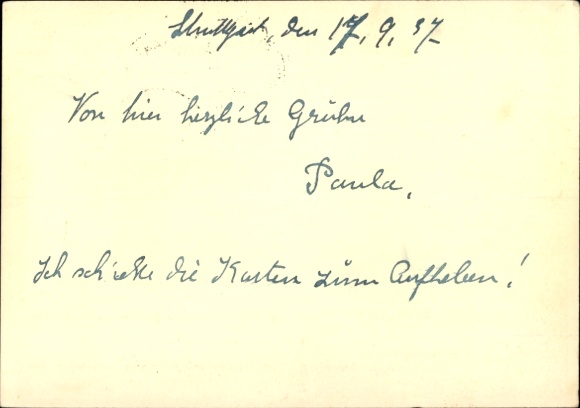 Stuttgart, den 17. 9. 37
Von hier herzliche Grüße
Paula.
Ich schicke die Karten zum Aufheben!